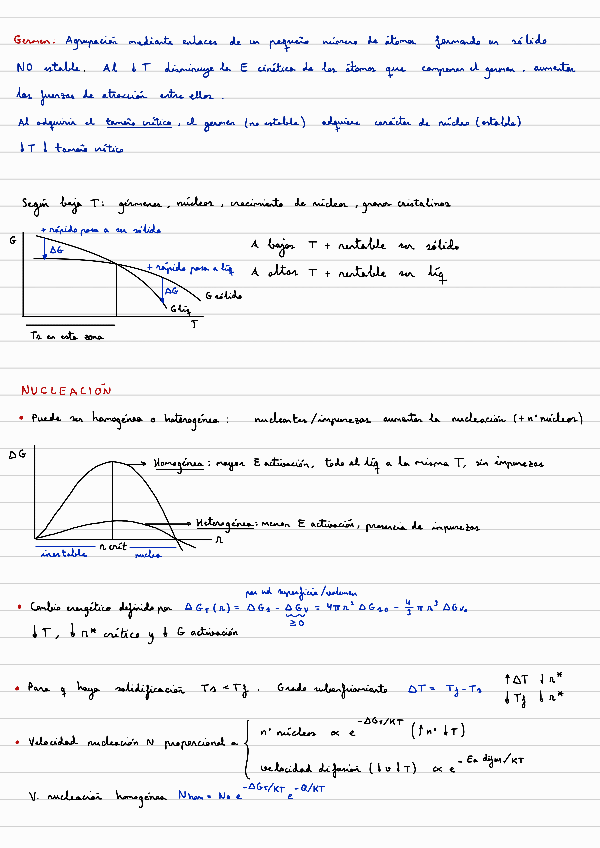 Germen. Agrupación mediante enlaces de un pequeño número de átomos formando un sólido
NO estable. Al ↓T disminuye la E cinética de los átomos que componen el germen, aumentan
las fuerzas de atracción entre ellos.
Al adquirir el tamaño crítico, el germen (no estable) adquiere carácter de núcleo (estable)
↓T ↓ tamaño crítico
Según baja T: gérmenes, núcleos, crecimiento de núcleos, granos cristalinos
+ rápido pasa a ser sólido
G
ΔG
A bajas T + rentable ser sólido
+ rápido pasa a líq
A altas T + rentable ser líq
ΔG
G sólido
G líq
T
Ts en esta zona
NUCLEACIÓN
• Puede ser homogénea o heterogénea: nucleantes/impurezas aumentan la nucleación (+ nº núcleos)
ΔG
Homogénea: mayor E activación, todo el líq a la misma T, sin impurezas
Heterogénea: menor E activación, presencia de impurezas
r
r crít
inestable
núcleo
por ud superficie/volumen
• Cambio energético definido por ΔG_T(r) = ΔG_s - ΔG_v = 4πr² ΔG_so - 4/3 π r³ ΔG_vo
≥0
↓T, ↓r* crítico y ↓ G activación
• Para q haya solidificación Ts < Tf. Grado subenfriamiento ΔT = Tf - Ts
↑ΔT ↓r*
↓Tf ↓r*
• Velocidad nucleación N proporcional a
nº núcleos ∝ e^(-ΔG_T/KT) (↑nº ↓T)
velocidad difusión (↓v ↓T) ∝ e^(-Ea difus/KT)
V. nucleación homogénea N_hom = N_o e^(-ΔG_T/KT) e^(-Q/KT)